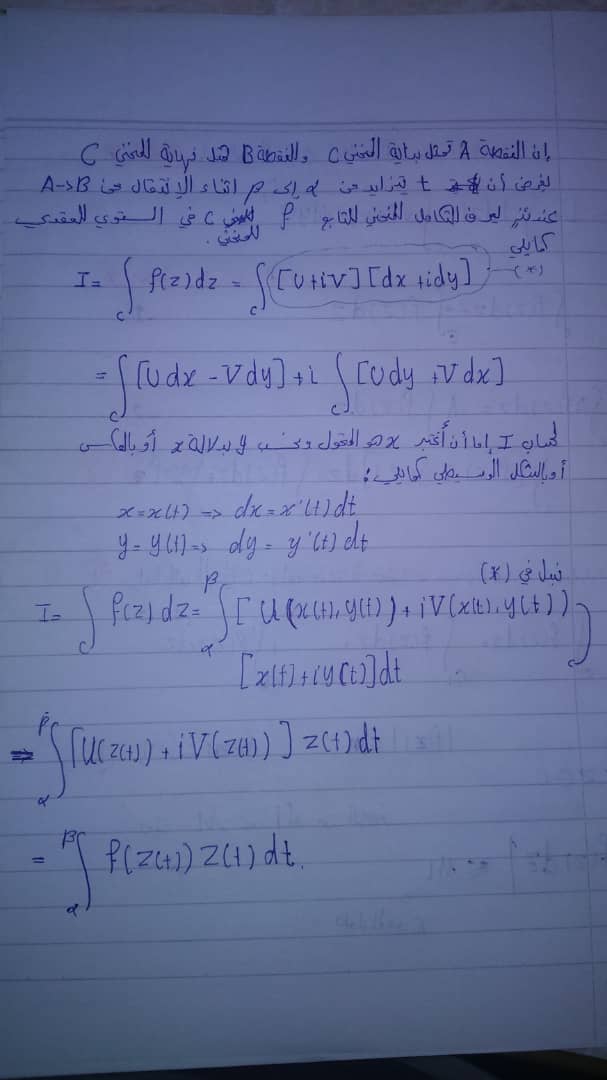 إن النقطة A تمثل بداية المنحني C والنقطة B تمثل نهاية المنحني C
لنفرض أن t يتزايد من α إلى β اثناء الإنتقال من A->B
عندئذٍ يعرف التكامل المنحني للتابع f للمنحني C في المستوي العقدي
كمايلي
I= ∫_C f(z)dz = ∫_C [U+iV][dx+idy] (*)
= ∫_C [Udx - Vdy] + i ∫_C [Udy + Vdx]
لحساب I إما أن أعتبر x هو المتحول ونحسب y بدلالة x أو بالعكس
أو بالشكل الوسيطي كمايلي:
x=x(t) => dx=x'(t)dt
y=y(t)=> dy= y'(t)dt
نبدل في (*)
I= ∫_C f(z)dz= ∫_α^β [U(x(t),y(t))+iV(x(t),y(t))
[x(t)+iy(t)]dt
=> ∫_α^β [U(z(t))+iV(z(t))]z(t)dt
= ∫_α^β f(z(t))z(t)dt.